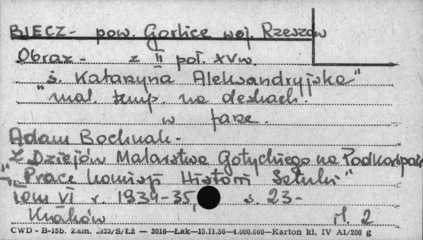 BIECZ - pow. Gorlice woj. Rzeszów
Obraz - z II poł. XV w.
"ś. Katarzyna Aleksandryjska"
"mal. temp. na deskach.
w farze.
Adam Bochnak -
"Z Dziejów Malarstwa Gotyckiego na Podkarpaciu"
"Prace Komisji Historii Sztuki"
tom VI r. 1934-35, s. 23 -
Kraków il. 2
CWD - B-15b. Zam. /S/Łż — 3016—Łak—15.11.56—4.000.000—Karton kl. IV A1/200 g